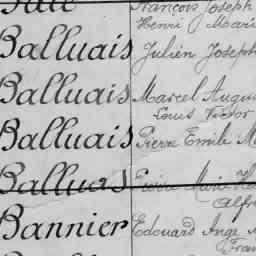 François Joseph
Henri Mari
Balluais Julien Joseph
Balluais Marcel Augus
Louis Victor
Balluais Pierre Emile M
Balluas Pierre Marie
Alfr
Bannier Edouard Ange M
Fran